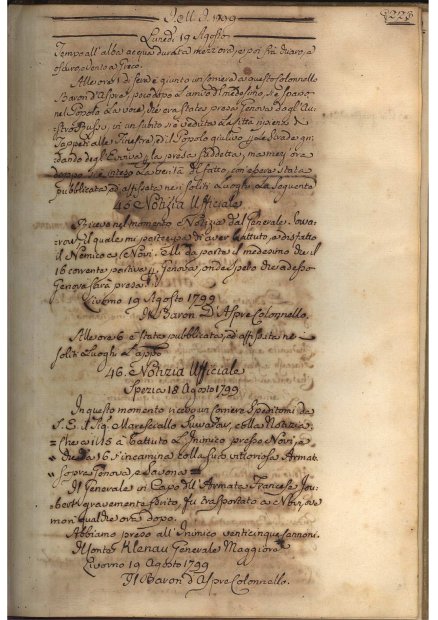 Dell' A. 1799
Lunedì 19 Agosto
Tempo all'alba acqua durata mezz'ora, e poi frà chiaro, e
oscuro, e vento a
Alle ore 1 di sera è giunto un Corriere a questo Colonnello
Baron d'Aspre, poco dopo l'arrivo di medesimo, si è sparsa
nel Popolo la voce, che era stata presa Genova dagli Au-
stro Russi, in un subito si è veduta la Città ripiena di
Tappeti alle Finestre, ed il Popolo giulivo p le Strade gri-
dando degl'Evviva p la presa suddetta, ma mezz'ora
doppo si è inteso la verità del fatto, con essere stata
pubblicata, ed affissata nei soliti Luoghi la seguente
46 Notizia Ufficiale
Ricevo nel momento Notizia dal Generale Souva-
row, il quale mi partecipa di aver battuto, e disfatto
il Nemico a Novi. Egli da parte il medesimo dì
16 corrente p Genova, onde spero che adesso
Genova sarà presa.
Livorno 19 Agosto 1799
Il Baron D'Aspre Colonnello.
Alle ore 6 è stata pubblicata, ed affissata ne
soliti Luoghi l'appo
46 Notizia Ufficiale
Spezia 18 Agosto 1799
In questo momento ricevo un Corriere Speditomi da
S. E. il Sig. Maresciallo Suwarow, colla Notizia
= Che ai 15 à battuto l'Inimico presso Novi, e
" che dà 16 s'incamina colla sua vittoriosa Armata
" sopra Genova, e Savona =
Il Generale in Capo dell'Armata Francese Jou-
bert gravemente ferito, fu trasportato a Novi, ove
morì qualche ora dopo.
Abbiamo preso all'Inimico venticinque Cannoni.
Il Conte Klenau Generale Maggiore
Livorno 19 Agosto 1799
Il Baron d'Aspre Colonnello.